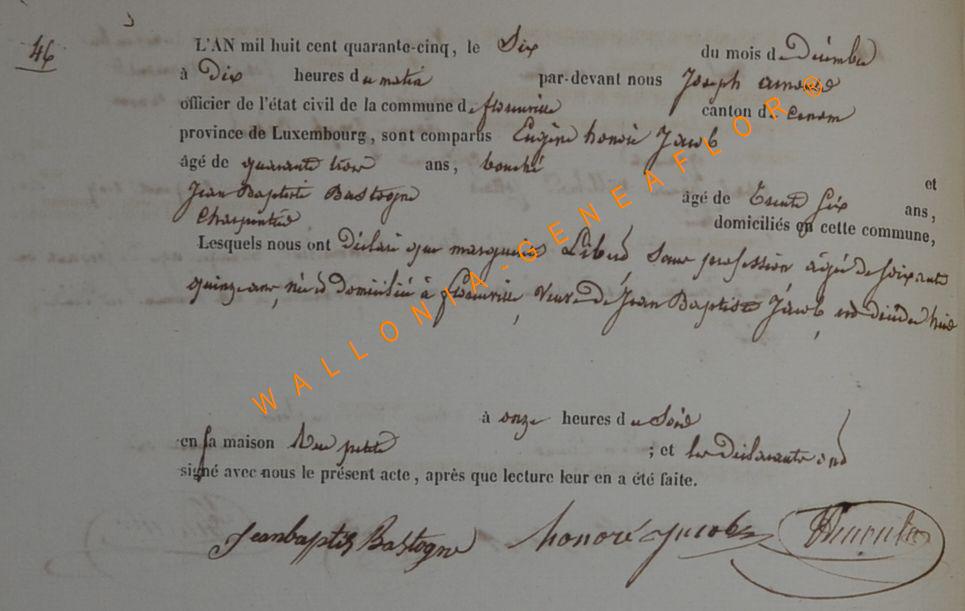 46
L'AN mil huit cent quarante-cinq, le Six du mois de Décembre
à Dix heures du matin par-devant nous Joseph
officier de l'état civil de la commune de florenville canton de
province de Luxembourg, sont comparus Eugène honoré Jacob
âgé de quarante trois ans, bouché et
Jean Baptiste Bastogne âgé de Trente Six ans,
Charpentier domiciliés en cette commune,
Lesquels nous ont Déclaré que marguerite Sans profession agée de soixante
quinze ans, née et domiciliée à florenville, veuve de Jean Baptiste Jacob, est décédée hier
à onze heures du Soir
en sa maison Rue petite ; et les déclarants ont
signé avec nous le présent acte, après que lecture leur en a été faite.
Jeanbaptis Bastogne honoré jacob
WALLONIA-GENEAFLOR®